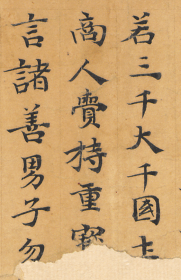 若三千大千國土
商人賷持重寶
言諸善男子勿